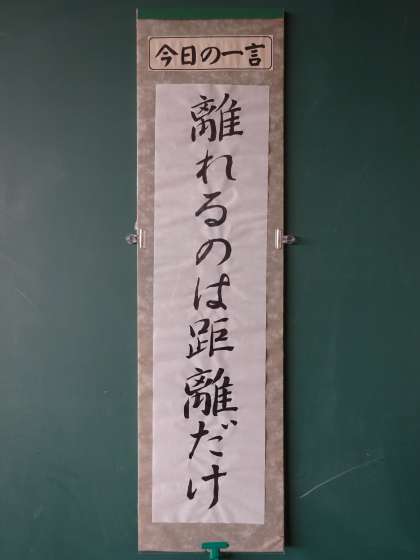 今日の一言
離れるのは距離だけ